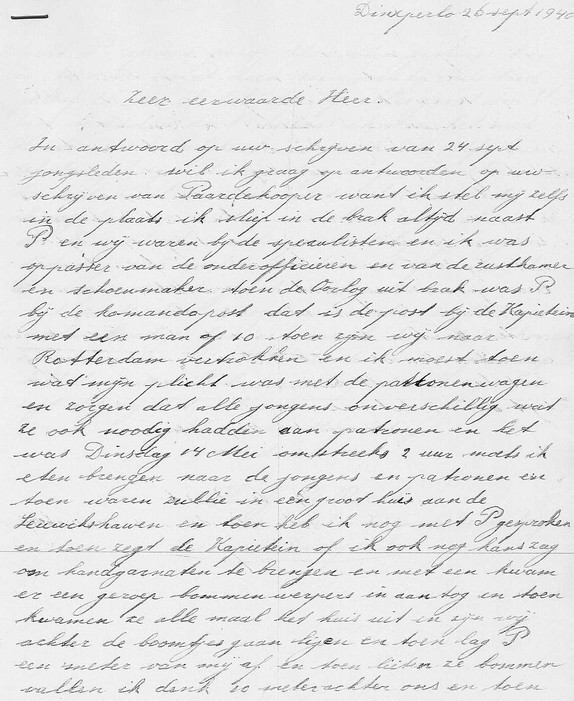 Dinxperlo 26 sept 1940
Zeer eerwaarde Heer.
In antwoord op uw schrijven van 24 sept
jongsleden wil ik graag op antwoorden op uw
schrijven van Paardekooper want ik stel mij zelfs
in de plaats ik sliep in de brak altijd naast
P. en wij waren bij de specalisten en ik was
oppasser van de onderofficieren en van de rustkamer
en schoenmaker toen de Oorlog uit brak was P.
bij de komandopost dat is de post bij de Kapietein
met een man of 10 toen zijn wij naar
Rotterdam vertrokken en ik moest toen
wat mijn plicht was met de patronenwagen
en zorgen dat alle jongens onverschillig wat
ze ook noodig hadden aan patronen en het
was Dinsdag 14 Mei omtstreeks 2 uur moets ik
eten brengen naar de jongens en patronen en
toen waren zullie in een groot huis aan de
Leuwekshaven en toen heb ik nog met P gesproken
en toen zegt de Kapietein of ik ook nog kans zag
om handgarnaten te brengen en met een kwam
er een geroep bommenwerpers in aan tog en toen
kwamen ze alle maal het huis uit en zijn wij
achter de boomtjes gaan lijen en toen lag P
een meter van mij af en toen lieten ze bommen
vallen ik denk 10 meter achter ons en toen